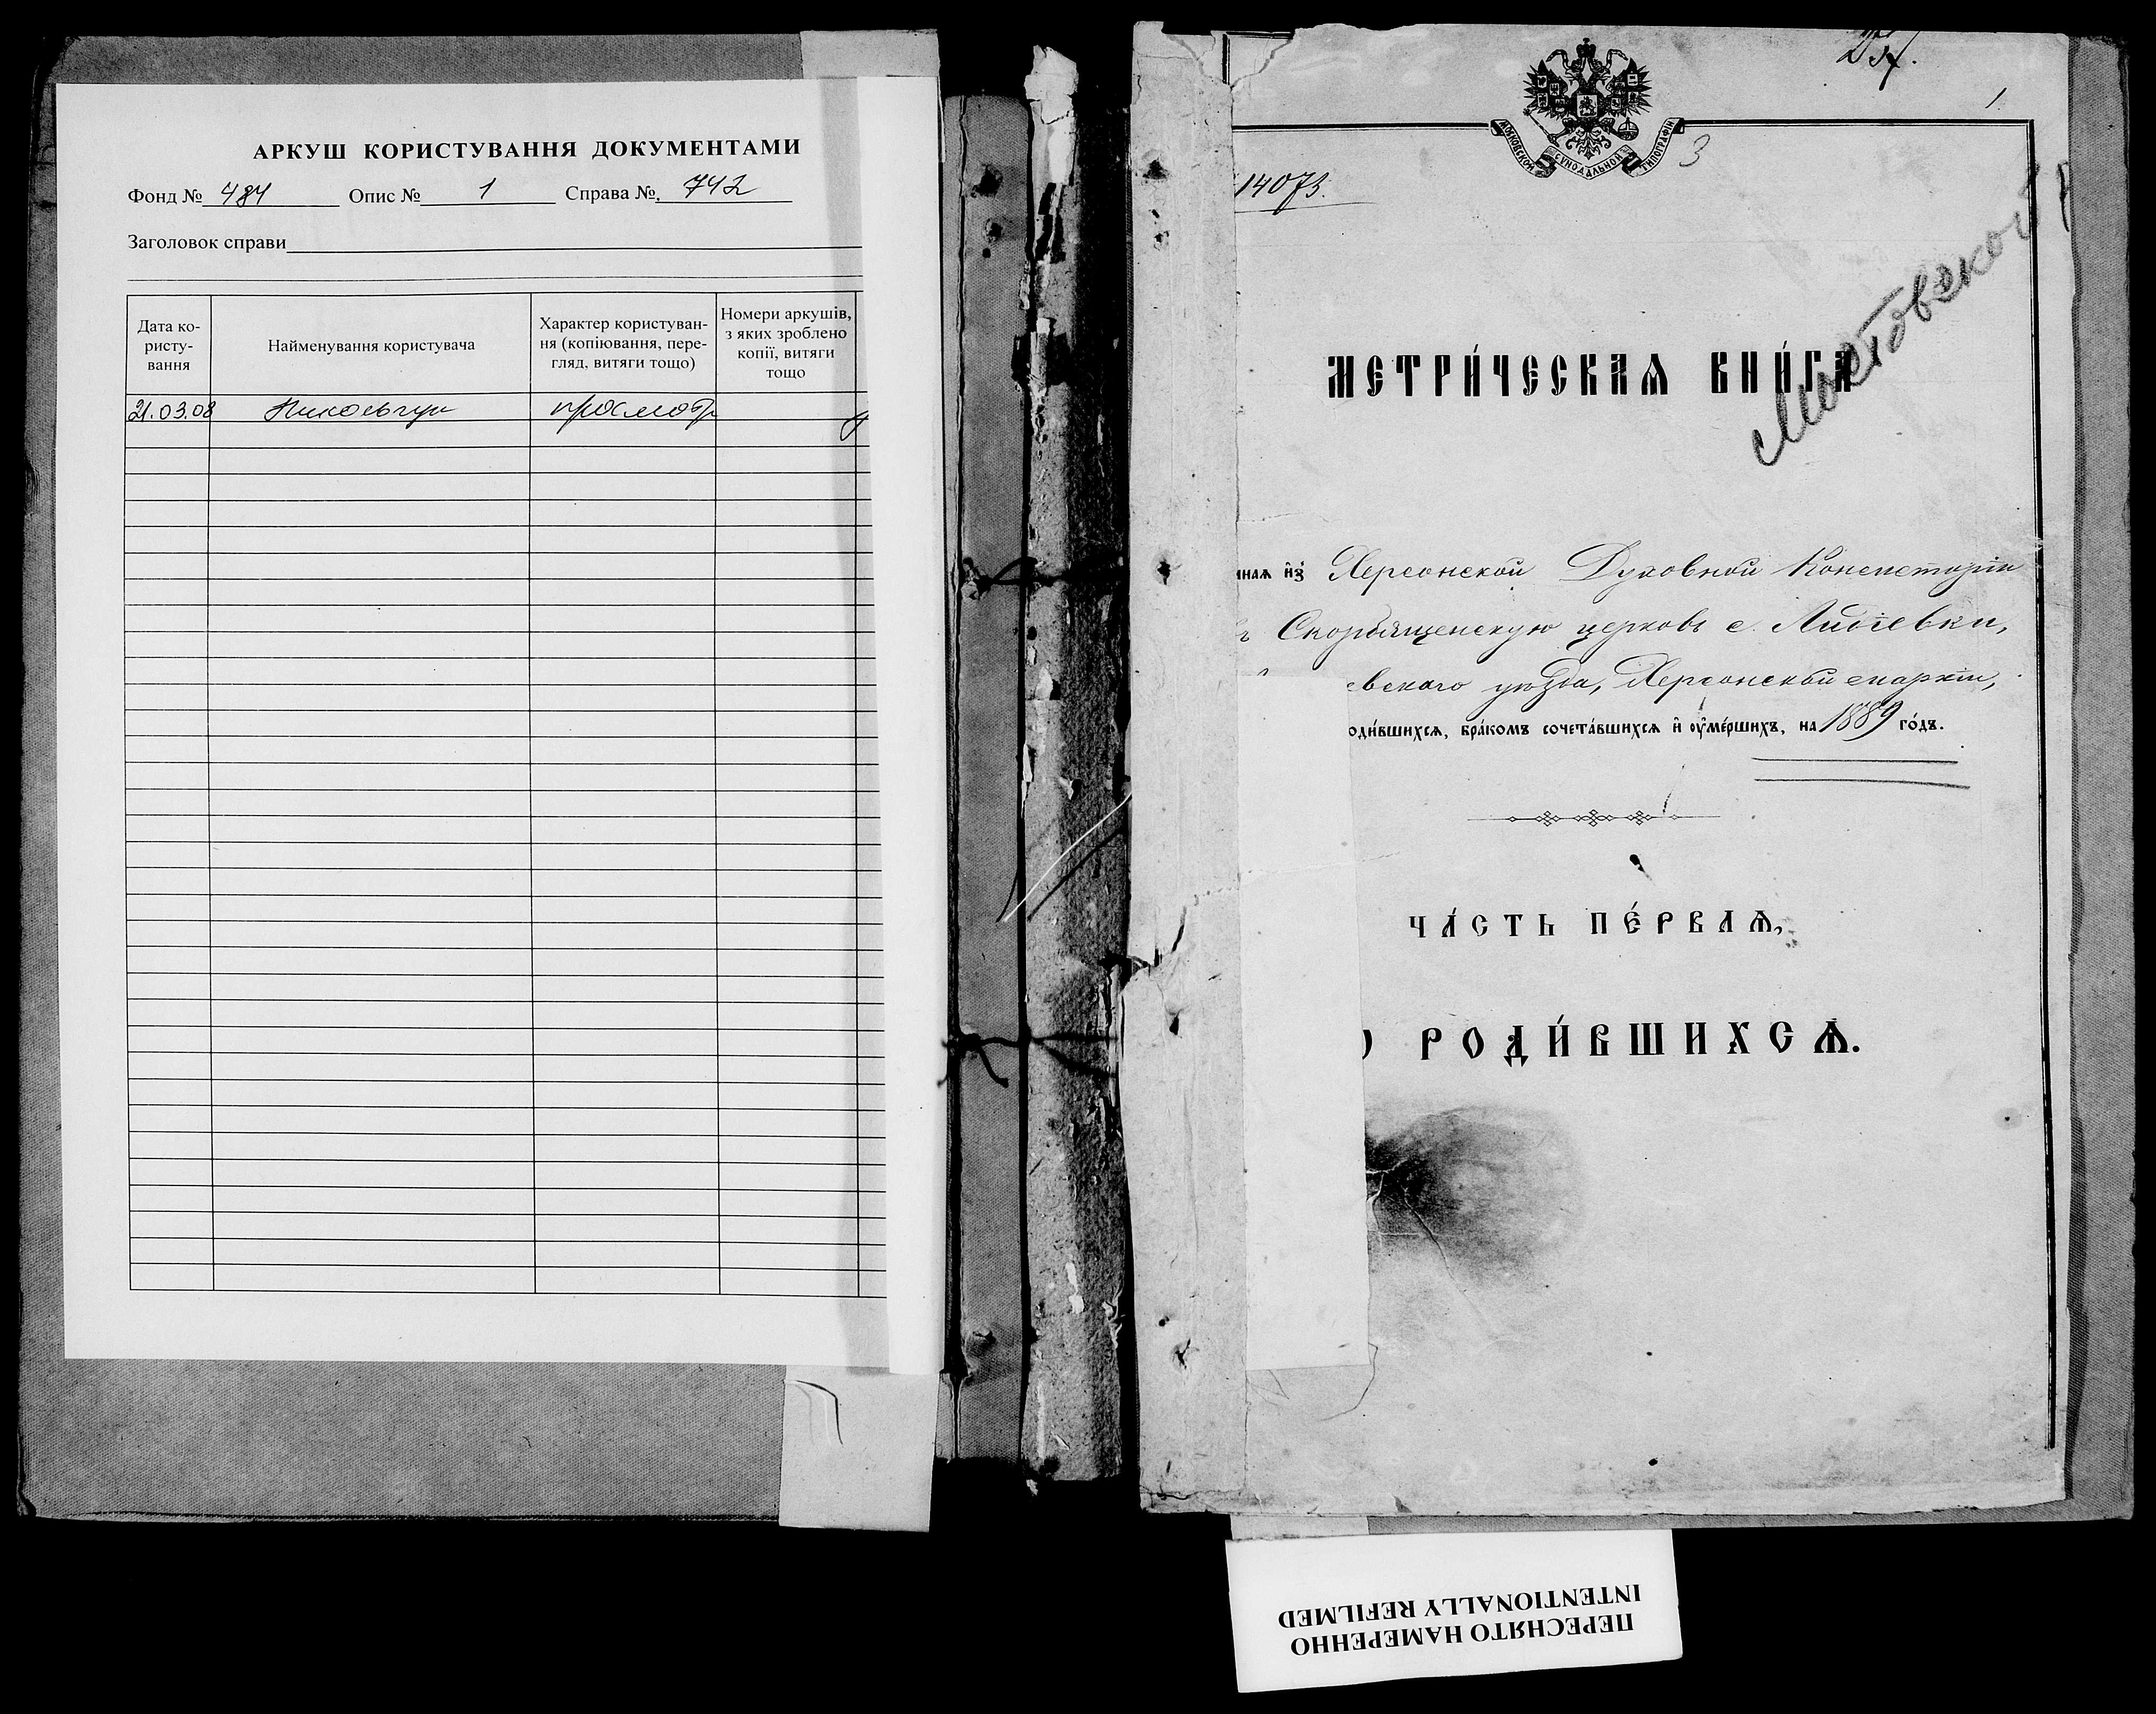 АРКУШ КОРИСТУВАННЯ ДОКУМЕНТАМИ
Фонд № 484 Опис № 1 Справа № 742
Заголовок справи
Дата ко-
ристу-
вання
Найменування користувача
Характер користуван-
ня (копіювання, пере-
гляд, витяги тощо)
Номери аркушів,
з яких зроблено
копії, витяги
тощо
21.03.08 просмотр
1
МОСКОВСКОЙ СѴНОДАЛЬНОЙ ТИПОГРАФІИ
3
14073.
МЕТРИ́ЧЕСКАѦ КНИ́ГА
Мостовской
нная и҆з̾ Херсонской Духовной Консисторіи
ъ Скорбященскую церковь с.
евскаго уѣзда, Херсонской епархіи,
оди́вшихсѧ, бра́комъ сочета́вшихсѧ и҆ ᲂу҆ме́ршихъ, на 1889 го́дъ.
ЧА́СТЬ ПЕ́РВАѦ,
РОДИ́ВШИХСѦ.
ПЕРЕСНЯТО НАМЕРЕННО
INTENTIONALLY REFILMED